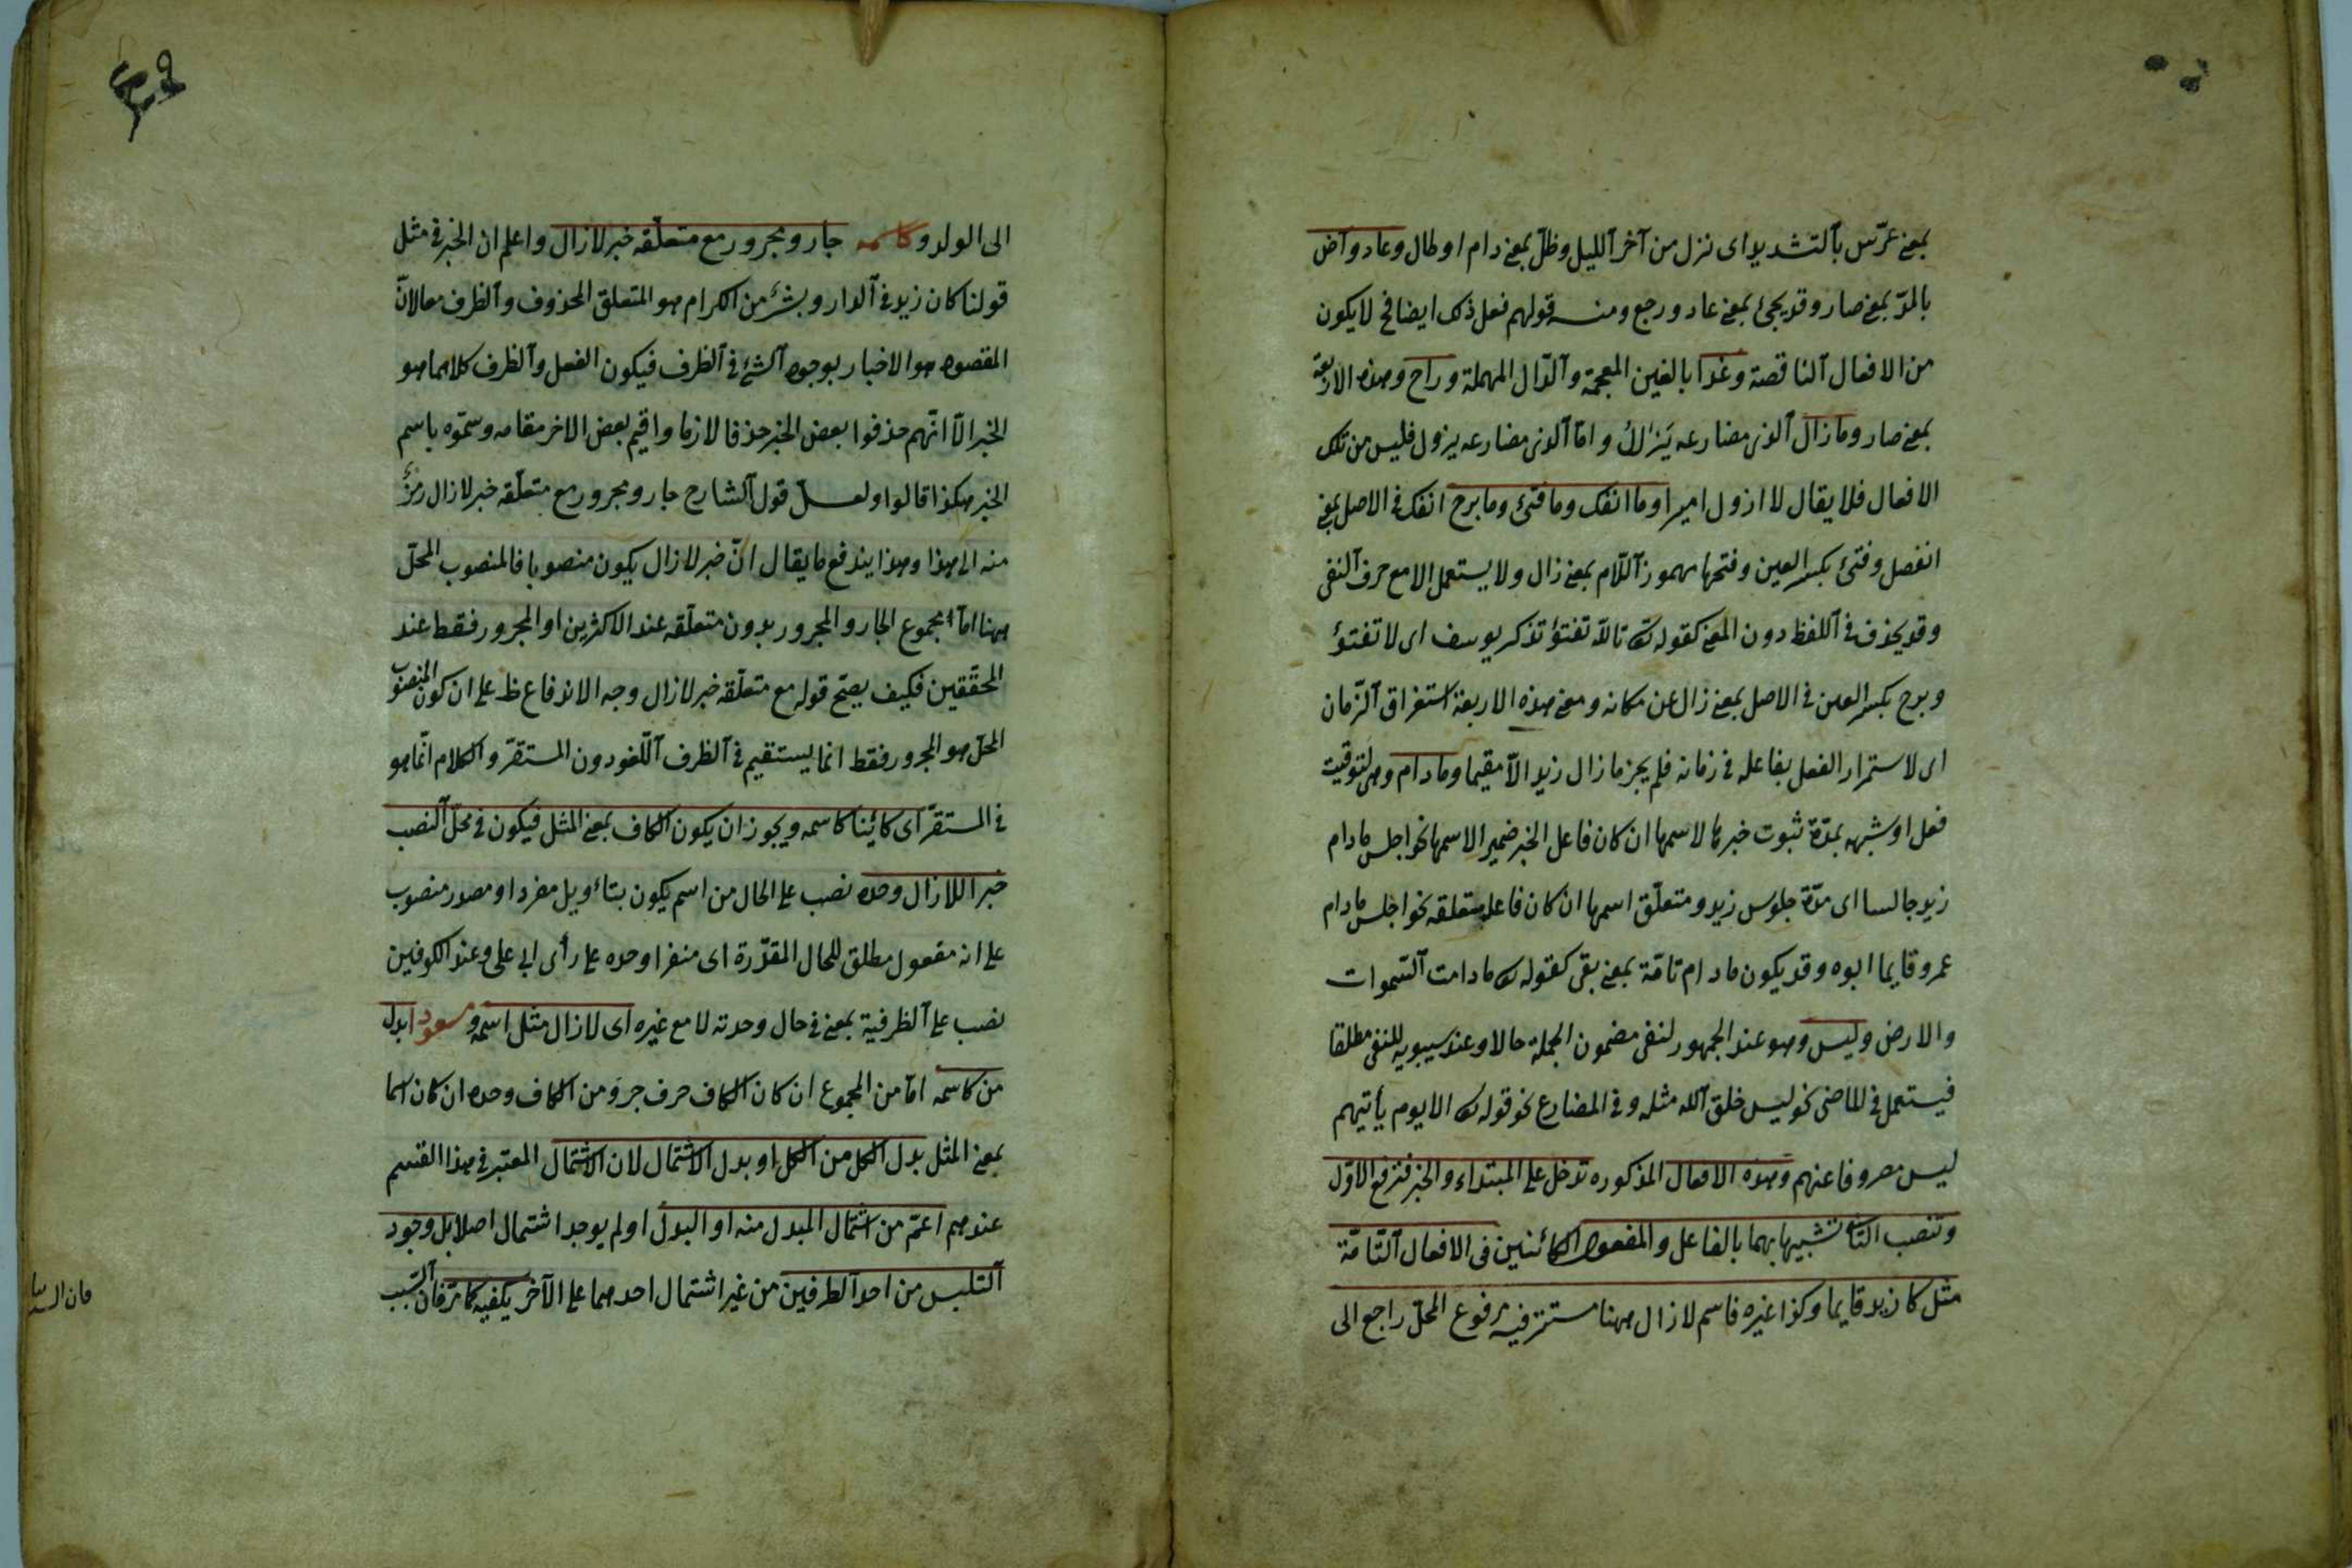 بمعنى عرّس بالتشديد اى نزل من آخر الليل وظلّ بمعنى دام او طال وعاد وآض
بالمدّ بمعنى صار وقد يجئ بمعنى عاد ورجع ومنه قولهم فعل ذلك ايضا فح لا يكون
من الافعال الناقصة وغدا بالغين المعجمة والدّال المهملة وراح وهذه الاربعة
بمعنى صار وما زال الذى مضارعه يَزالُ وامّا الذى مضارعه يزول فليس من تلك
الافعال فلا يقال لا ازول اميرا وما انفك وما فتئ وما برح انفك فى الاصل بمعنى
انفصل وفتئ بكسر العين وفتحها مهموز اللّام بمعنى زال ولا يستعمل الا مع حرف النفى
وقد يحذف فى اللفظ دون المعنى كقوله تع تالله تفتؤ تذكر يوسف اى لا تفتؤ
وبرح بكسر العين فى الاصل بمعنى زال عن مكانه ومعنى هذه الاربعة استغراق الزّمان
اى لاستمرار الفعل بفاعله فى زمانه فلم يجز ما زال زيد الّا مقيما وما دام وهى لتوقيت
فعل او شبهه بمدّة ثبوت خبرها لاسمها ان كان فاعل الخبر ضمير الاسمها نحو اجلس ما دام
زيد جالسا اى مدّة جلوس زيد ومتعلّق اسمها ان كان فاعله متعلقه نحو اجلس ما دام
عمرو قايما ابوه وقد يكون ما دام تامّة بمعنى بقى كقوله تع ما دامت السّموات
والارض وليس وهو عند الجمهور لنفى مضمون الجملة حالا وعند سيبويه للنفى مطلقا
فيستعمل فى الماضى نحو ليس خلق الله مثله وفى المضارع نحو قوله تع الا يوم يأتيهم
ليس مصروفا عنهم وهذه الافعال المذكوره تدخل على المبتداء والخبر فترفع الاوّل
وتنصب الثانى تشبيها بهما بالفاعل والمفعول الكائنين فى الافعال التّامّة
مثل كان زيد قايما وكذا غيره فاسم لا زال ههنا مستتر فيه مرفوع المحلّ راجع الى
الى الولد وكاسمه جار ومجرور مع متعلّقه خبر لا زال واعلم ان الخبر فى مثل
قولنا كان زيد فى الدار وبشر من الكرام هو المتعلق المحذوف والظرف معا لانّ
المقصود هو الاخبار بوجود الشئ فى الظرف فيكون الفعل والظرف كلاهما هو
الخبر الّا انّهم حذفوا بعض الخبر حذفا لازما واقيم بعض الاخر مقامه وسمّوه باسم
الخبر هكذا قالوا ولعلّ قول الشارح جار ومجرور مع متعلّقه خبر لا زال رمزٌ
منه الى هذا وهذا يندفع ما يقال انّ خبر لا زال يكون منصوبا فالمنصوب المحلّ
ههنا امّا مجموع الجار والمجرور بدون متعلّقه عند الاكثرين او المجرور فقط عند
المحقّقين فكيف يصحّ قوله مع متعلّقه خبر لا زال وجه الاندفاع ظ على ان كون المنصوب
المحلّ هو المجرور فقط انما يستقيم فى الظرف اللّغو دون المستقرّ والكلام انّما هو
فى المستقرّ اى كائنا كاسمه ويجوز ان يكون الكاف بمعنى المثل فيكون فى محلّ النصب
خبر اللا زال وحده نصب على الحال من اسم يكون بتاءويل مفردا او مصدر منصوب
على انه مفعول مطلق للحال المقدّرة اى منفرا وحده على رأى ابى على وعند الكوفيين
نصب على الظرفية بمعنى فى حال وحدته لا مع غيره اى لا زال مثل اسمه ومسعود ا بدل
من كاسمه امّا من المجموع ان كان الكاف حرف جر ومن الكاف وحده ان كان اسما
بمعنى المثل بدل الكل من الكل او بدل الاشتمال لان الاشتمال المعتبر فى هذا القسم
عندهم اعمّ من اشتمال المبدل منه او البدل او لم يوجد اشتمال اصلا بل وجود
التلبس من احد الطرفين من غير اشتمال احدهما على الآخر يكفيه كما مرّ فان السّبب